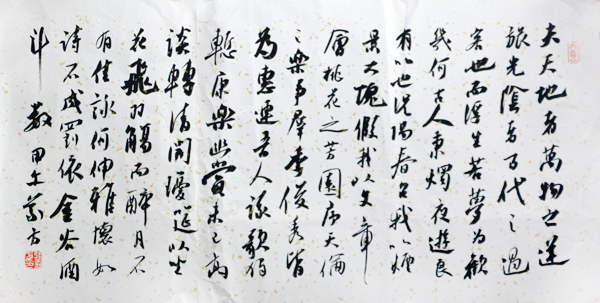 夫天地者萬物之逆
旅光陰者百代之過
客也而浮生若夢為歡
幾何古人秉燭夜遊良
有以也況陽春召我以煙
景大塊假我以文章
會桃花之芳園序天倫
之樂事羣季俊秀皆
為惠連吾人詠歌獨
慙康樂幽賞未已高
談轉清開瓊筵以坐
花飛羽觴而醉月不
有佳詠何伸雅懷如
詩不成罰依金谷酒
斗數